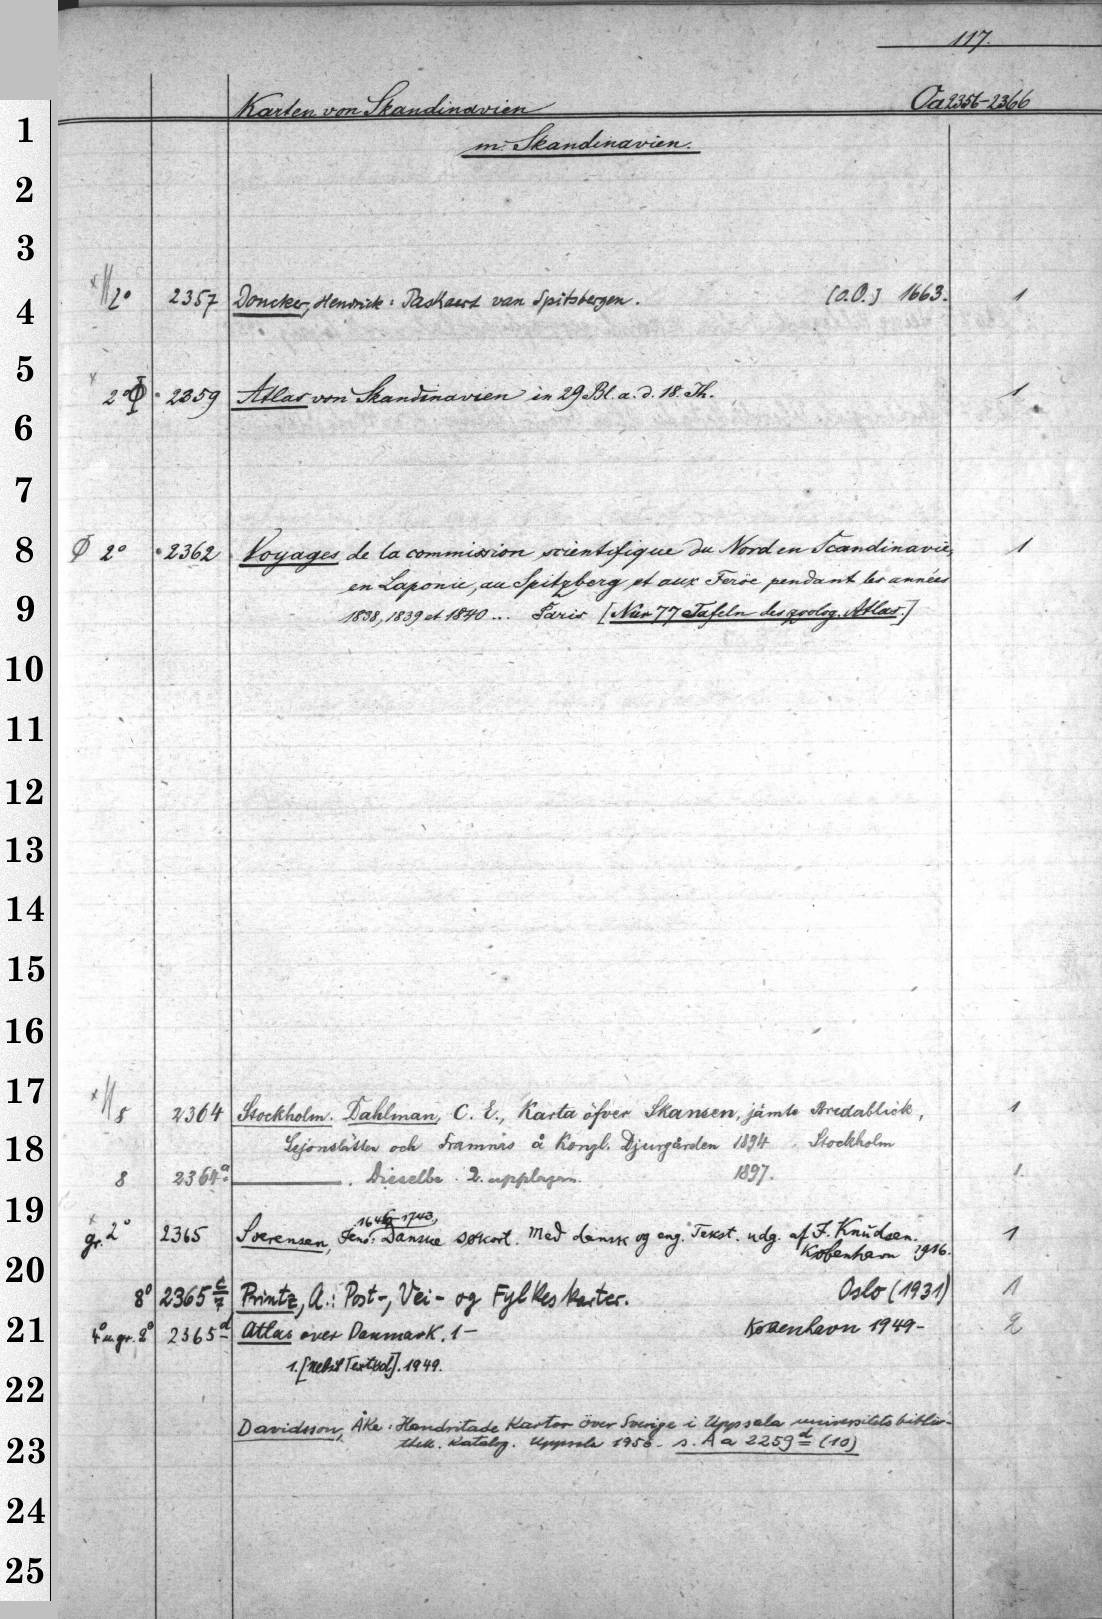 117.
Karten von Skandinavien Oa2356-2366
m. Skandinavien.
1
2
3
4
5
6
7
8
9
10
11
12
13
14
15
16
17
18
19
20
21
22
23
24
25
2° 2357 Doncker, Hendrick: Paskaert van Spitsbergen. [o.O.] 1663. 1
2° Φ 2359 Atlas von Skandinavien in 29 Bl. a. d. 18. Jh. 1
Φ 2° 2362 Voyages de la commission scientifique du Nord en Scandinavie, 1
en Laponie, au Spitzberg et aux Feröe pendant les années
1838, 1839 et 1840 ... Paris [Nur 77 Tafeln des zoolog. Atlas.]
8 2364 Stockholm. Dahlman, C. E., Karta öfver Skansen, jämte Bredablick, 1
och Framnäs å Kongl. Djurgården 1894. Stockholm
8 2364a. . Dieselbe. 2. upplagan. 1897. 1.
1743,
gr. 2° 2365 Soerensen, Jens: Danske søkort. Med dansk og eng. Tekst. udg. af J. Knudsen. 1
København 1916.
8° 2365 c/7 Printz, A.: Post-, Vei- og Fylkeskarter. Oslo (1931) 1
4° u. gr. 2° 2365d Atlas over Danmark. 1- København 1949- 2
1. [nebst Textbd]. 1949.
Davidsson, Åke: Handritade Kartor över Sverige i Uppsala universitetsbiblio-
thek. Katalog. Uppsala 1956. s. Aa 2259d (10)